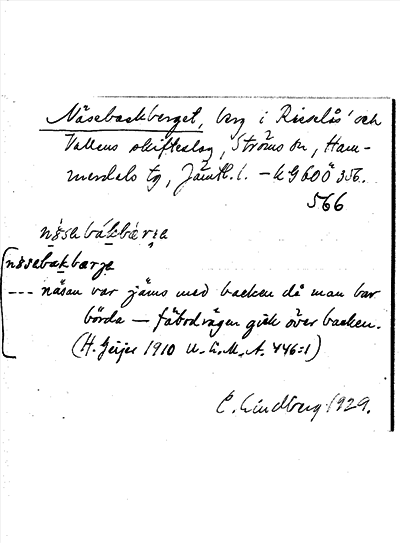 Näsebackberget, berg i Risselås och
Vallens skifteslag, Ströms sn, Ham-
merdals tg, Jämtl. l. - k G 60 Ö 356.
566
nǝsabákbærja
nǝsabakbærja
--- näsan var jäms med backen då man bar
börda — fäbodvägen gick över backen.
(H. Geijer 1910 U.L.M.A. 446:1)
E. Lindberg 1929.